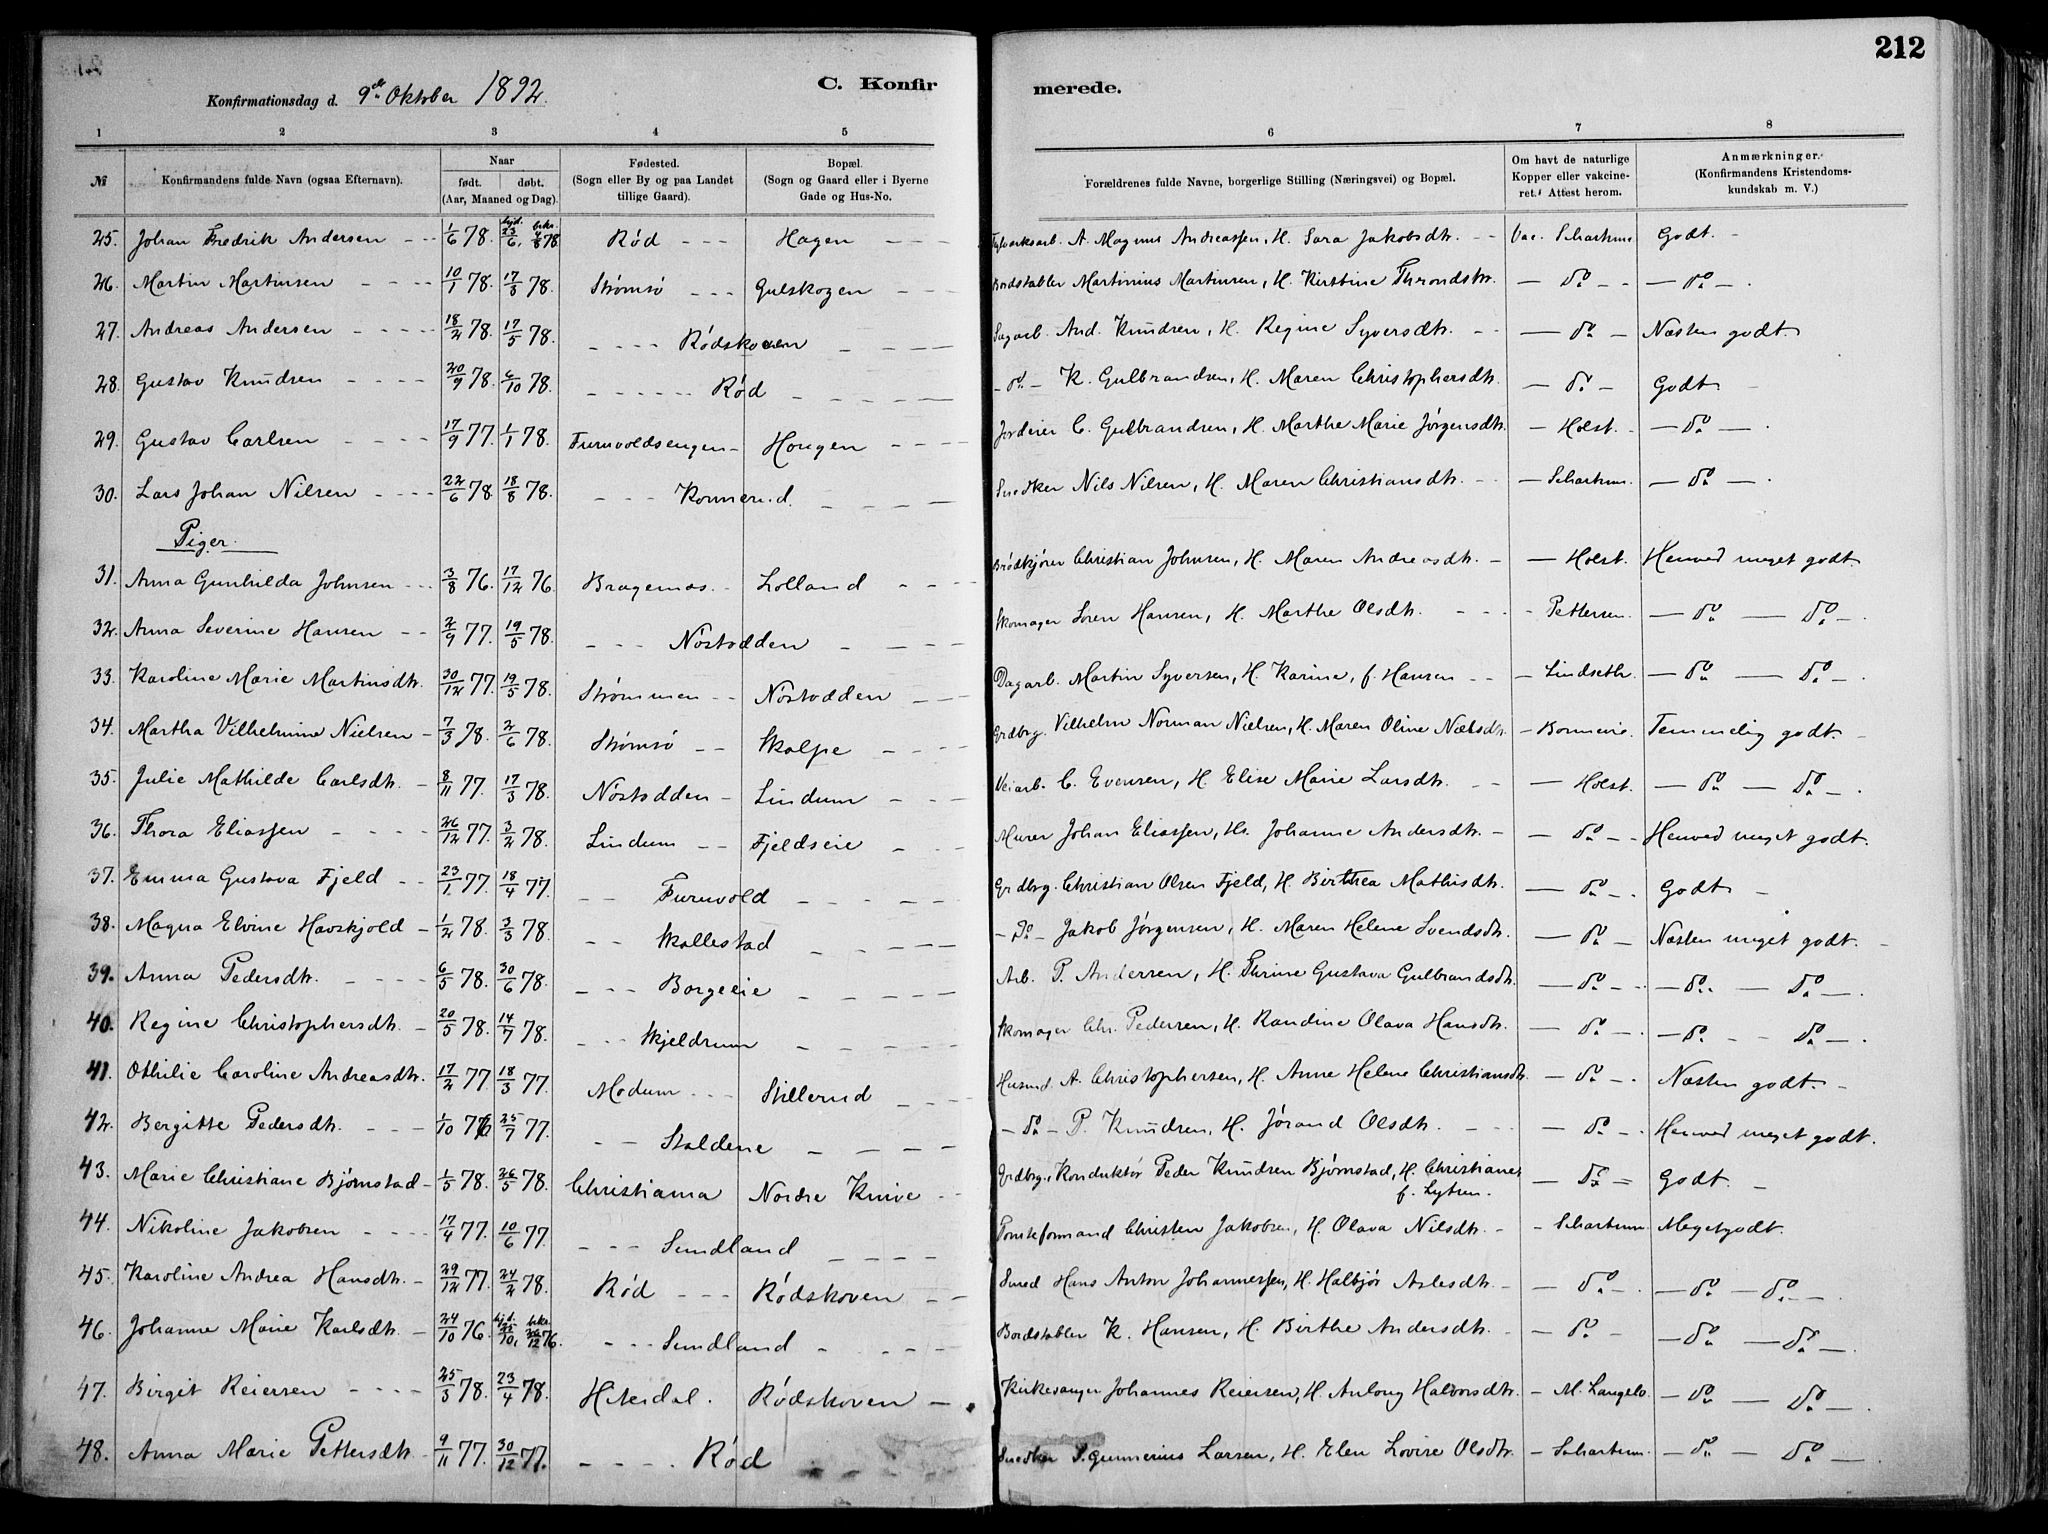 212
C. Konfirmerede.
Konfirmationsdag d. 9de Oktober 1892.
1 2 3 4 5 6 7 8
№ Konfirmandens fulde Navn (ogsaa Efternavn). Naar født. døbt. (Aar, Maaned og Dag). Fødested. (Sogn eller By og paa Landet tillige Gaard). Bopæl. (Sogn og Gaard eller i Byerne Gade og Hus-No. Forældrenes fulde Navne, borgerlige Stilling (Næringsvei) og Bopæl. Om havt de naturlige Kopper eller vakcineret. Attest herom. Anmærkninger. (Konfirmandens Kristendomskundskab m. V.)
25. Johan Fredrik Andersen 1/6 78. hjd. 23/6, bekr. 4/8 78 Rød Hagen A. Magnus Andreassen, H. Sara Jakobsdtr. Vac. Schartum Godt
26. Martin Martinsen 10/1 78. 17/3 78. Strømsø Gulskogen Bordstabler Martinius Martinsen, H. Kirstine Throndsdtr. — do — — do —.
27. Andreas Andersen 18/2 78. 17/5 78. Rødskoven Sagarb. And. Knudsen, H. Regine Syversdtr. — do — Næsten godt.
28. Gustav Knudsen 20/9 78. 6/10 78. Rød - do - K. Gulbrandsen, H. Maren Christophersdtr. — do — Godt —
29. Gustav Carlsen 17/9 77. 1/1 78. Furuvoldsengen Hougen Jordeier C. Gulbrandsen, H. Marthe Marie Jørgensdtr. — Holst. — do —.
30. Lars Johan Nilsen 22/6 78 18/8 78. Konnerud. Snedker Nils Nilsen, H. Maren Christiansdtr. — Schartum. — do —.
Piger.
31. Anna Gunhilda Johnsen 3/8 76. 17/12 76. Bragernæs Lolland Brødkjører Christian Johnsen, H. Maren Andreasdtr. — Holst. Henved meget godt.
32. Anna Severine Hansen 2/9 77. 19/5 78. Nøstodden Skomager Søren Hansen, H. Marthe Olsdtr. - Pettersen — do — do —.
33. Karoline Marie Martinsdtr. 30/12 77. 19/5 78. Strømmen Nøstodden Dagarb. Martin Syversen, H. Karine, f. Hansen — Lindseth. — do — do —.
34. Martha Vilhelmine Nielsen 7/3 78. 2/6 78. Strømsø Skalpe Grdbrg. Vilhelm Norman Nielsen, H. Maren Oline Nielsdtr. — Bonnevie. Temmelig godt.
35. Julie Mathilde Carlsdtr. 8/11 77. 17/3 78. Nøstodden Lindum Veiarb. C. Evensen, H. Elise Marie Larsdtr. — Holst. — do — do —.
36. Thora Eliassen 26/12 77. 3/2 78. Lindum Fjeldseie Murer Johan Eliassen, H. Johanne Andersdtr. — do — Henved meget godt.
37. Emma Gustava Fjeld 23/1 77. 18/4 77. Furuvold Grdbrg. Christian Olsen Fjeld, H. Birthea Mathisdtr. — do —. Godt —
38. Magna Elvine Havskjold 1/2 78. 3/3 78. Skallestad - do - Jakob Jørgensen, H. Maren Helene Svendsdtr. — do — Næsten meget godt.
39. Anna Pedersdtr. 6/5 78. 30/6 78. Borgeeie Arb. P. Andersen, H. Thrine Gustava Gulbrandsdtr. — do — — do — do —.
40. Regine Christophersdtr. 20/5 78. 14/7 78. Skjeldrum Skomager Chr. Pedersen, H. Randine Olava Hansdtr. — do —. — do — do —.
41. Othilie Caroline Andreasdtr. 17/2 77. 18/3 77. Modum Stillerud Husmd. A. Christophersen, H. Anne Helene Christiansdtr. — do —. Næsten godt.
42. Bergitte Pedersdtr. 1/10 76 25/7 77. Staldene - do - P. Knudsen, H. Jørand Olsdtr. — do —. Henved meget godt.
43. Marie Christiane Bjørnstad 1/5 78. 26/5 78. Christiania Nordre Knive Grdbrg., Konduktør Peder Knudsen Bjørnstad, H. Christiane, f. Lytsen. — do — Godt. —
44. Nikoline Jakobsen 17/4 77. 10/6 77. Sundland Tomteformand Christen Jakobsen, H. Olava Nilsdtr. - Schartum. Meget godt.
45. Karoline Andrea Hansdtr. 29/12 77. 24/2 78. Rød Rødskoven Smed Hans Anton Johannessen, H. Halbjør Aslesdtr. — do —. — do — do —.
46. Johanne Marie Karlsdtr. 24/10 76. hjd. 25/10, bekr. 26/12 76. Sundland Bordstabler K. Hansen, H. Birthe Andersdtr. — do — — do — do —.
47. Birgit Reiersen 25/3 78. 23/4 78. Hiterdal. Rødskoven Kirkesanger Johannes Reiersen, H. Anlong Halvorsdtr. — M. Langelo. — do — do —.
48. Anna Marie Pettersdtr. 9/11 77. 30/12 77. Rød Snedker P. Gunnerius Larsen, H. Elen Lovise Olsdtr. — Schartum. — do — do —.